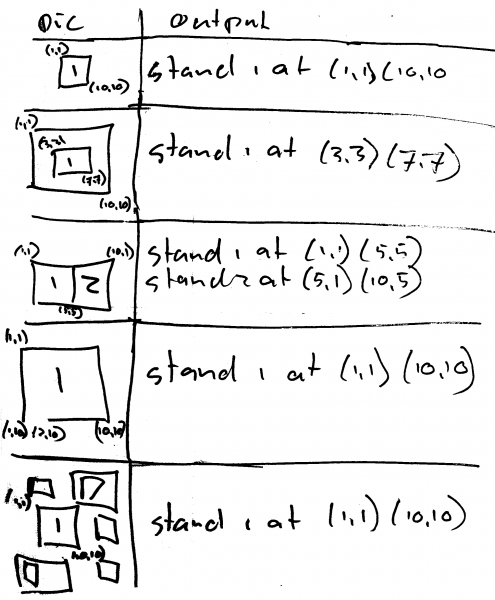 pic output
(1,1)
1
(10,10)
stand 1 at (1,1)(10,10
(1,1)
(3,3)
1
(7,7)
(10,10)
stand 1 at (3,3)(7,7)
(1,1) (10,1)
1 2
(5,5)
stand 1 at (1,1)(5,5)
stand 2 at (5,1)(10,5)
(1,1)
1
(1,10) (10,10)
stand 1 at (1,1)(10,10)
17
1
(10,10)
stand 1 at (1,1)(10,10)